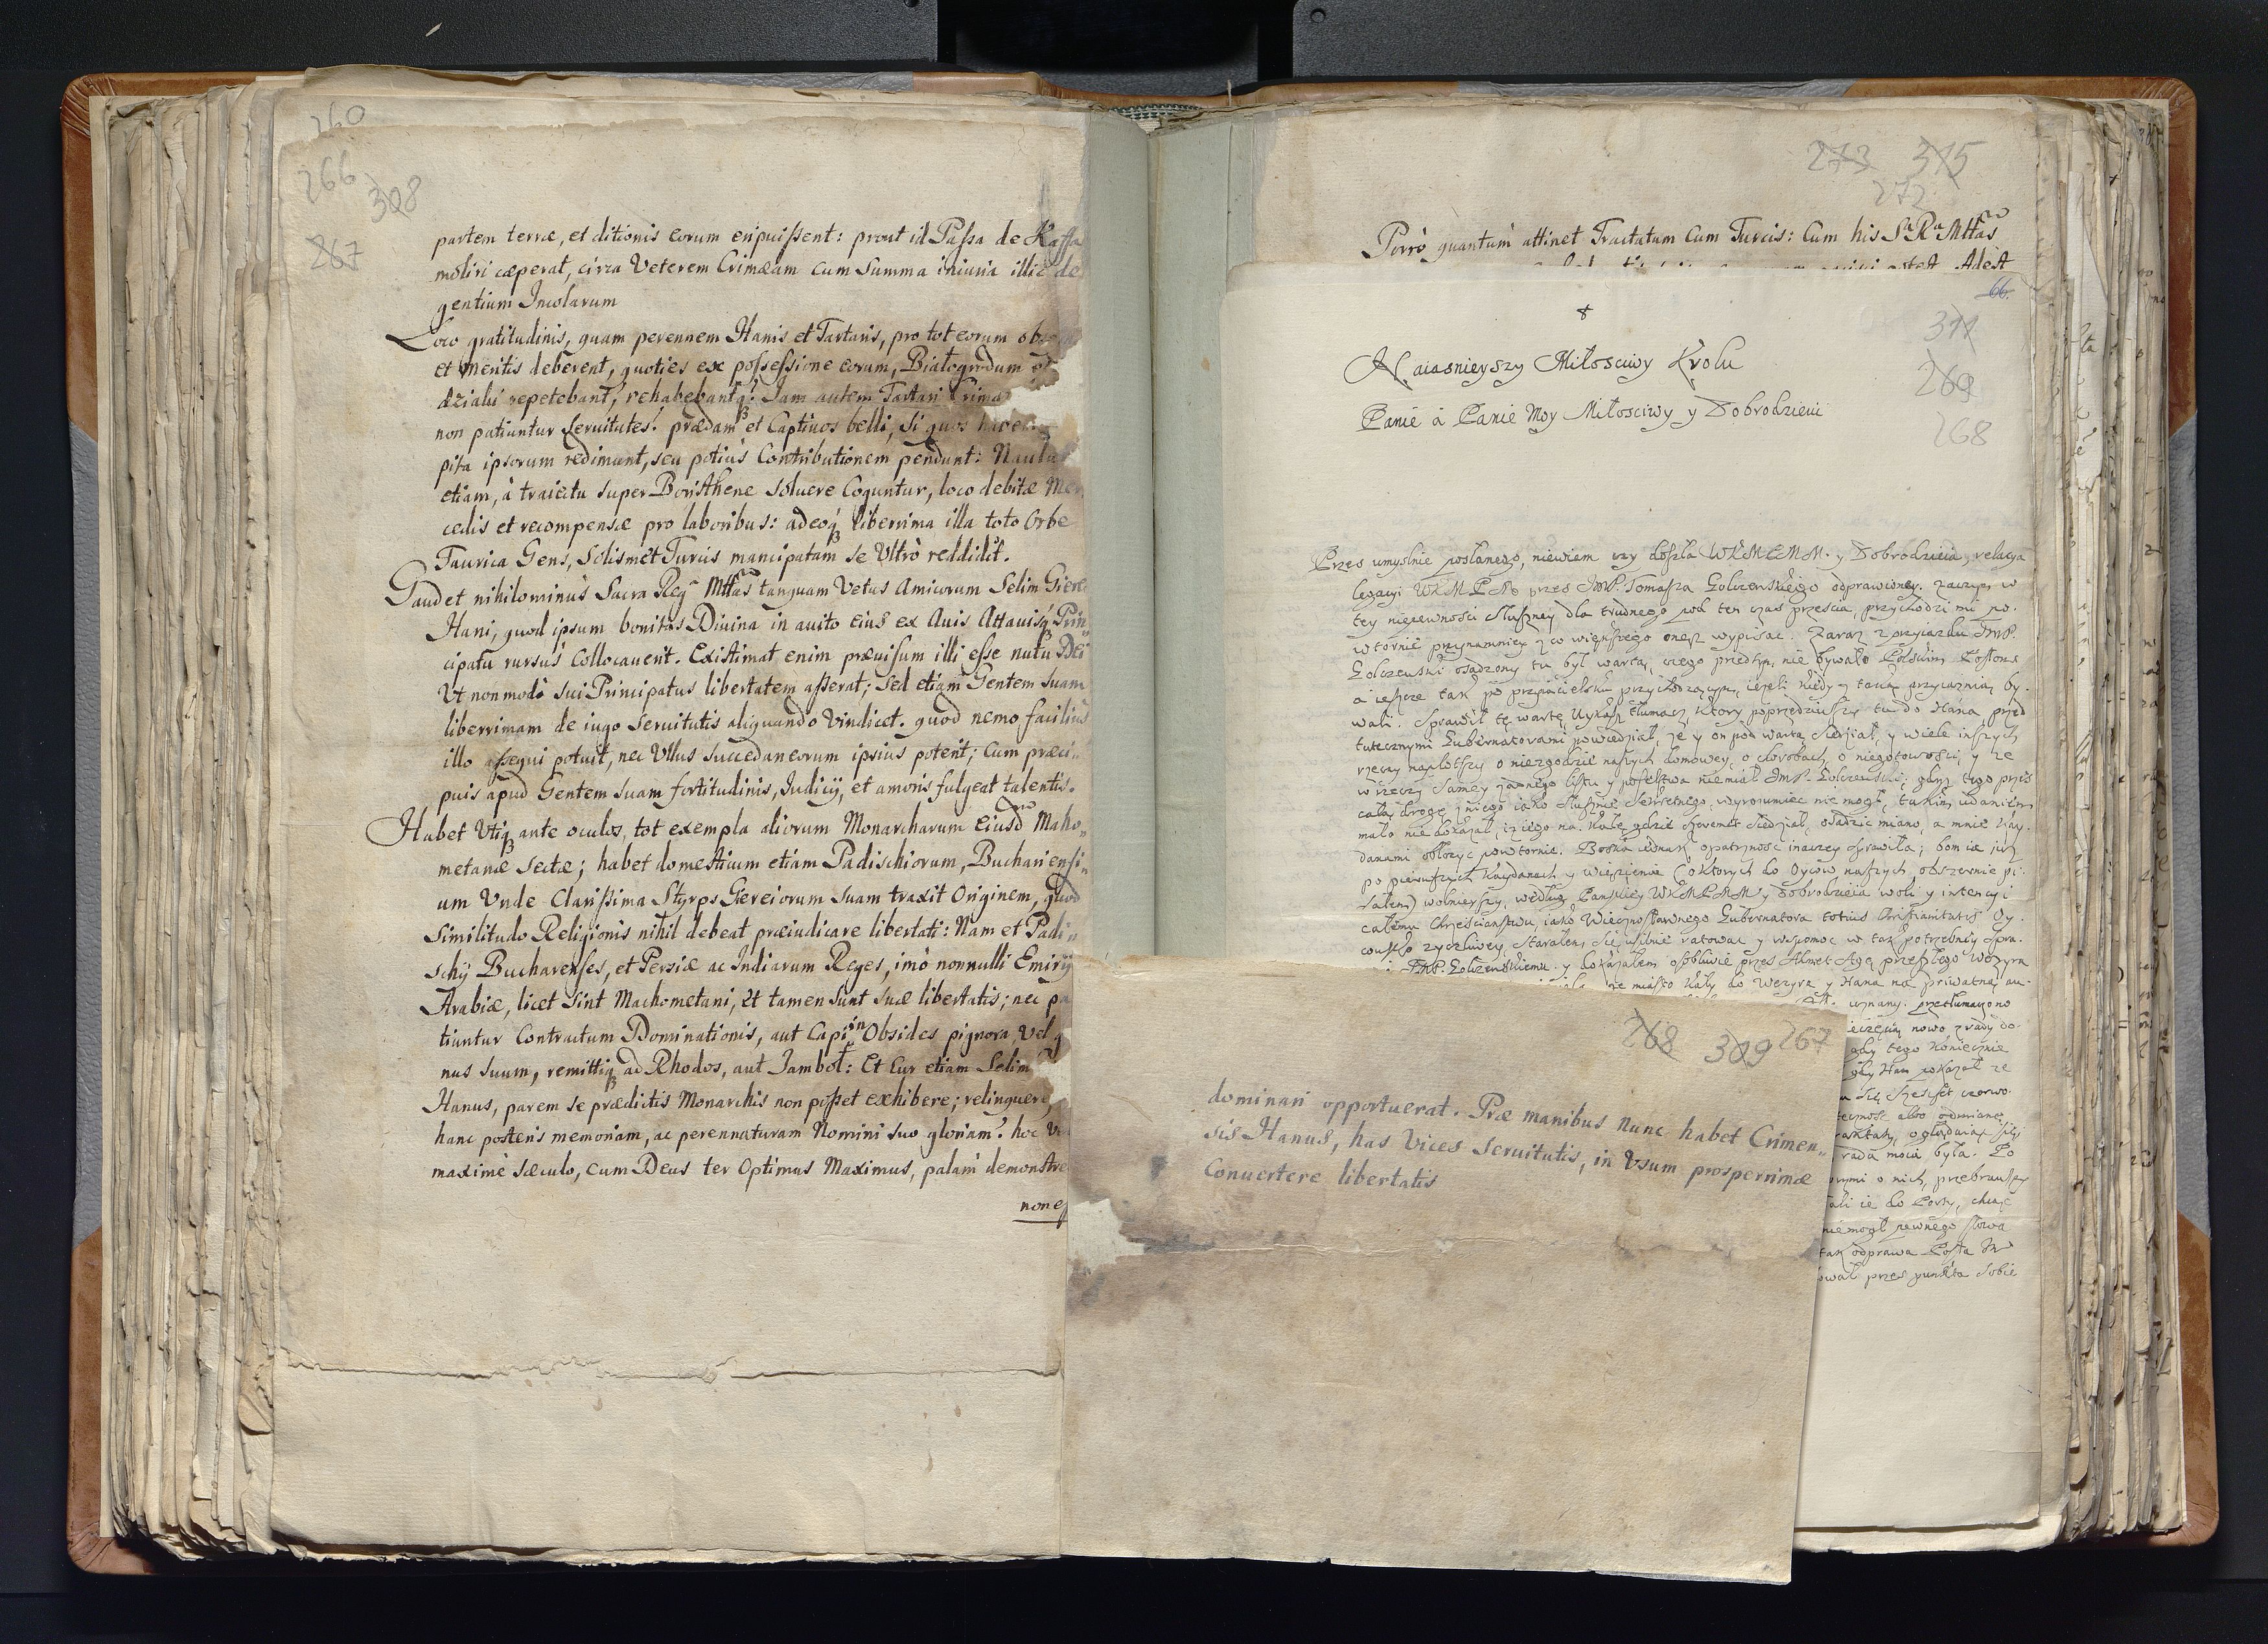 260
266
308
267
partem terræ, et ditionis eorum eripuissent: prout id Passa de Kaffa
moliri cæperat, circa Veterem Crimæam cum Summa iniuria illic de
gentium Incolarum
Loco gratitudinis, quam perennem Hanis et Tartaris, pro tot eorum
et meritis deberent, quoties ex possessione eorum, Białogrodum
repetebant, rehabebantq́: Jam autem Tartari
non patiuntur Seruitutes: prædam et Captiuos belli, Si quos
pita ipsorum redimunt, seu potius Contributionem pendunt: Naula
etiam, à traiectu super Boristhene soluere Coguntur, loco debitæ Mer
cedis et recompensæ pro laboribus: adeoq́ liberrima illa toto Orbe
Taurica Gens, Solismet Turcis mancipatam se Vltrò reddidit.
Gaudet nihilominus Sacra Reg Mttas tanquam Vetus Amicorum Selim
Hani, quod ipsum bonitas Diuina in auito Eius ex Auis Attauisq́ Prin„
cipatu rursus Collocauerit. Existimat enim præuisum illi esse nutu Dei
Vt non modò sui Principatus libertatem asserat; Sed etiam Gentem suam
liberrimam de iugo Seruitutis aliquando Vindicet. quod nemo facilius
illo assequi potuit, nec Vllus Succedaneorum ipsius poterit; Cum præci„
puis apud Gentem suam fortitudinis, Judicij, et amoris fulgeat talentis.
Habet Vtiq́ ante oculos, tot exempla aliorum Monarcharum Eiusd Maho„
metanæ Sectæ; habet domesticum etiam Padischiorum, Buchariensi„
um Vnde Clarissima Styrps Giereiorum Suam traxit Originem, quod
Similitudo Religionis nihil debeat præiudicare libertati: Nam et Padi„
schij Bucharenses, et Persiæ ac Indiarum Reges, imò nonnulli Emirij
Arabiæ, licet Sint Machometani, Et tamen sunt suæ libertatis; nec pa
tiuntur Contractum Dominationis, aut Capi in Obsides pignora, Vel
nus suum, remittiq́ ad Rhodos, aut Jambol: Et Cur etiam Selim
Hanus, parem se prædictis Monarchis non posset exhibere; relinquere
hanc posteris memoriam, ac perennaturam Nomini suo gloriam? hoc
maximè sæculo, cum Deus ter Optimus Maximus, palam demonstre
273 315
272
Porrò quantum attinet Tractatum Cum Turcis: Cum his Sa Ra Mttas
66.
311
269
268
Naiasnieyszy Miłosciwy Krolu
Panie á Panie Moy Miłosciwy y Dobrodzieiu
Przes umyslnie posłanego, niewiem czy doszła WKMCMM. y Dobrodzieia, relacya
legacyi WKMPM przes JmP. Tomasza Golczewskiego odprawioney. zaczym w
tey niepewności słuszney dla trudnego pod ten czas przescia, przychodzi mi po„
wtornie przynamniey co większego onesz wypisać. Zaraz z przyiazdu JmP.
Golczewski osądzony tu był wartą, czego przedtym nie bywało Polskim Posłom
a ieszcze tak po przyiacielsku przychodzącym, ieżeli kiedy z taką przyiaznią by„
wali. Sprawił tę wartę tłumacz, ktory poprzedziwszy tu do Hana przed
tutecznymi Gubernatorami powiedział, że y on pod wartą siedział, y wiele inszych
rzeczy naplotszy o niezgodzie naszych domowey, o chorobach, o niegotowości, y że
w rzeczy samey żadnego listu y poselstwa niemiał JmP. Golczewski; gdyż tego przes
całą drogę z niego iako słusznie sekretnego, wyrozumiec nie mogł, takim udaniem
mało nie dokazał, iż iego na Kałę gdzie Szeremet siedział, osadzić miano, a mnie kay„
danami obłożyc powtornie. Boska iednak opatrznosc inaczey sprawiła; bom ia już
po pierwszych kaydanach y więzieniu (o ktorych do Oycow naszych obszernie pi„
sałem) wolnieyszy, według Panskiey WKMPMM y Dobrodzieia woli y intencyi
całemu Chrześcianstwu, iako Wiecznosławnego Gubernatora totius Christianitatis Oy„
cowsko życzliwey, starałem się usilnie ratowac y wspomoc w tak potrzebney spra„
JmP. Golczewskiemu. y dokazałem osobliwie przes Ahmet Agę przeszłego Wezyra
miasto Kały do Wezyra y Hana na priwatną au„
uznany. przetłumaczono
nowo zrady do„
gdy tego koniecznie
gdy Han pokazał że
rada moia była. Po
o nich, przebrawszy
ie do Porty, chcąc
niemogł pewnego słowa
tak odprawa Posła
przes punkta sobie
268 309 267
dominari opportuerat. Præ manibus nunc habet Crimen„
sis Hanus, has Vices Seruitutis, in Vsum prosperrimæ
Conuertere libertatis